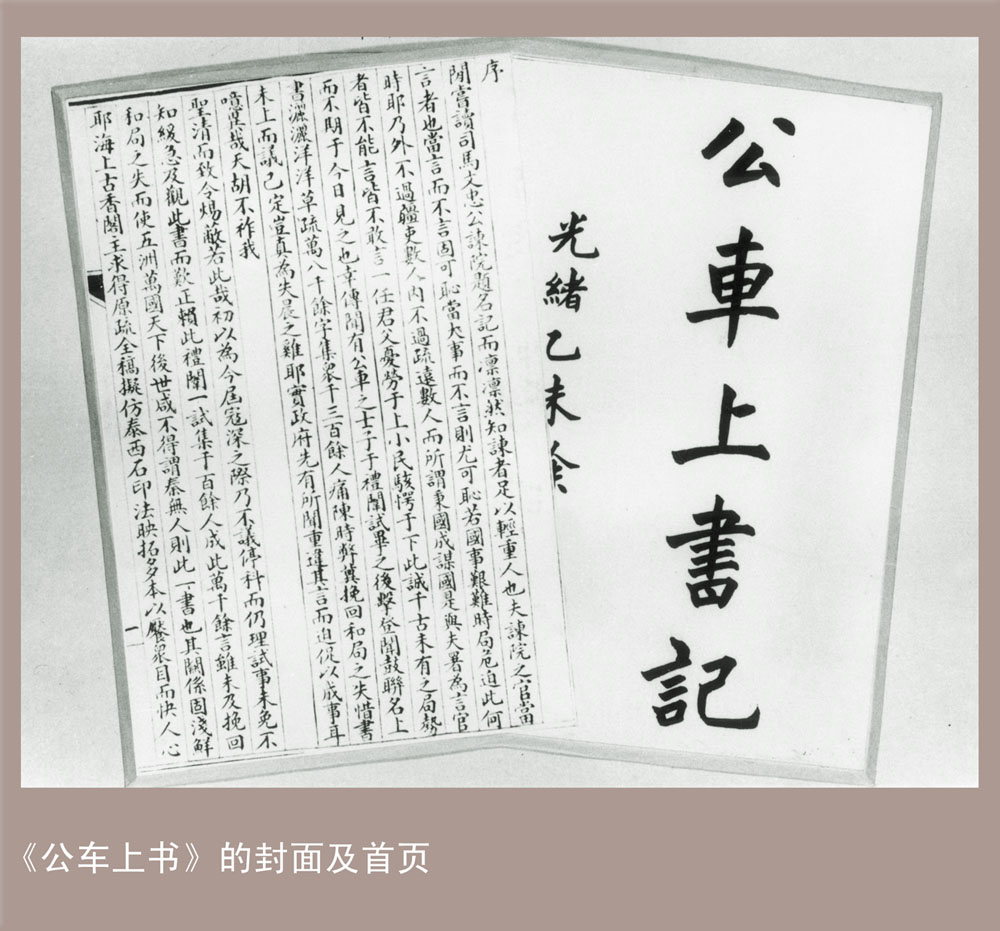 公車上書記
光緒乙未
序
閒嘗讀司馬文忠公諫院題名記而凛凛然知諫者足以輕重人也夫諫院之官當
言者也當言而不言固可恥當大事而不言則尤可恥若國事艱難時局危迫此何
時耶乃外不過疆吏數人內不過疏遠數人而所謂秉國成謀國是與夫署為言官
者皆不能言皆不敢言一任君父憂勞于上小民駭愕于下此誠千古未有之局勢
而不期于今日見之也幸傳聞有公車之士子于禮闈試畢之後擊登聞鼓聯名上
書灑灑洋洋草疏萬八千餘字集衆千三百餘人痛陳時弊冀挽回和局之失惜書
未上而議已定豈真為失晨之雞耶實政府先有所聞重違其言而迫促以成事耳
噫噫哉天胡不祚我
聖清而致令煬蔽若此哉初以為今屆寇深之際乃不議停科而仍理試事未免不
知緩急及觀此書而歎正賴此禮闈一試集千百餘人成此萬千餘言雖未及挽回
和局之失而使五洲萬國天下後世咸不得謂秦無人則此一書也其關係固淺鮮
耶海上古香閣主求得原疏全稿擬仿泰西石印法映拓多本以饜衆目而快人心
一
《公车上书》的封面及首页